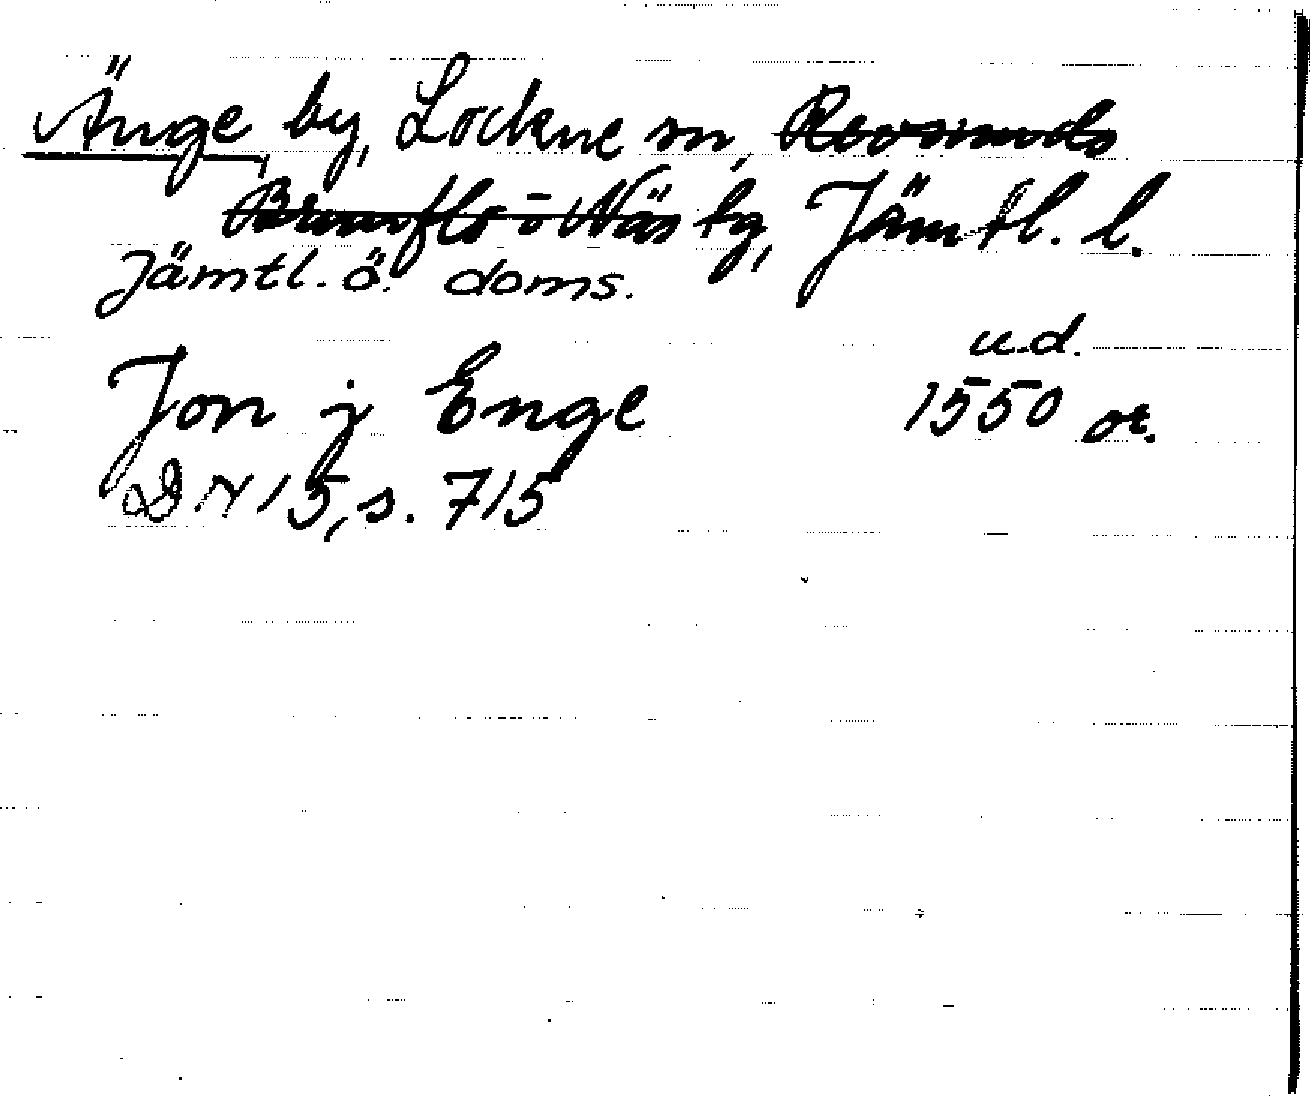 Änge by, Lockne sn, Revsunds
Brunflo o Näs tg, Jämtl. l.
Jämtl. ö. doms.
u.d.
Jon j Enge 1550 ot.
DN 15, s. 715